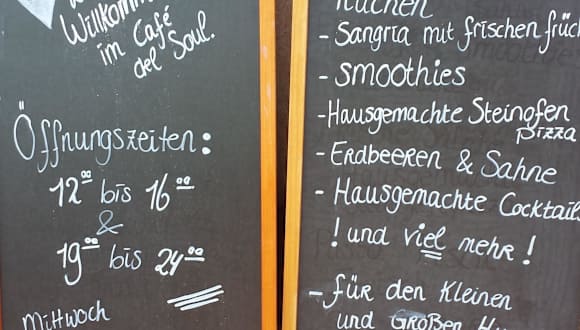 im Café
del Soul.
Öffnungszeiten:
12⁰⁰ bis 16⁰⁰
&
19⁰⁰ bis 24⁰⁰
Mittwoch
Kuchen
- Sangria mit frischen
- Smoothies
- Hausgemachte Steinofen
Pizza
- Erdbeeren & Sahne
- Hausgemachte Cocktail
! und viel mehr!
- für den Kleinen
und Großen